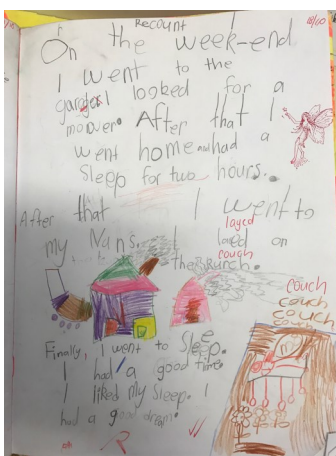 Recount
On the week-end
I went to the
I looked for a
mower. After that I
went home and had a
sleep for two hours.
After that I went to
my Nans. I layed
loved on
couch
the kunch.
couch
couch
couch
couch
Finally, I went to Sleep.
I had a good time.
I liked my sleep. I
had a good dream.